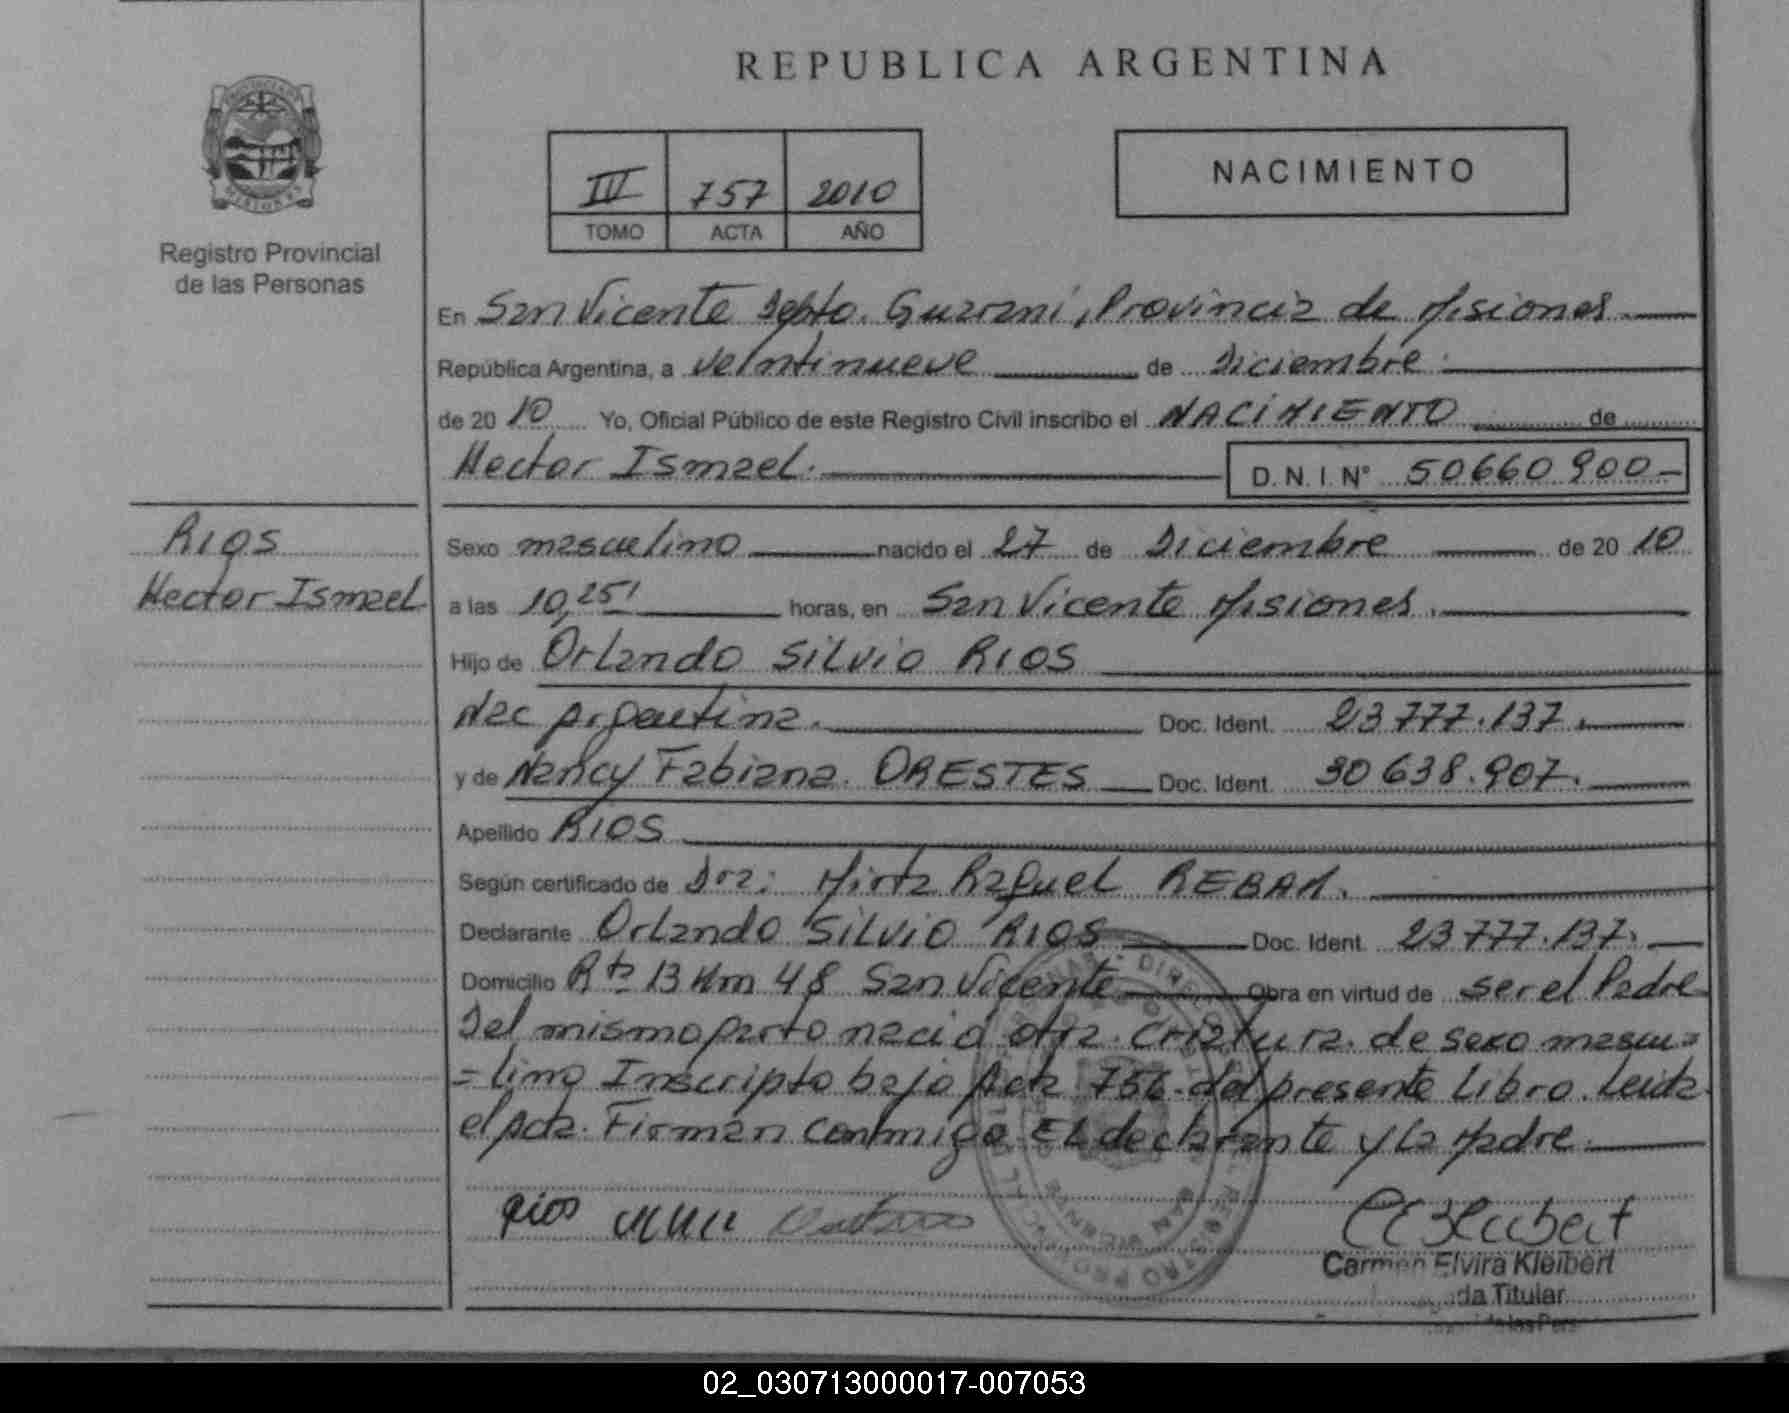 REPUBLICA ARGENTINA
NACIMIENTO
III 757 2010
TOMO ACTA AÑO
Registro Provincial
de las Personas
En San Vicente Depto. Guaraní, Provincia de Misiones
República Argentina, a veintinueve de Diciembre
de 20 10 Yo, Oficial Público de este Registro Civil inscribo el NACIMIENTO de
Hector Ismael. D.N.I. Nº 50660900-
RIOS
Hector Ismael
Sexo masculino nacido el 27 de Diciembre de 20 10
a las 10,25' horas, en San Vicente Misiones.
Hijo de Orlando Silvio RIOS
Nac Argentina. Doc. Ident. 23777.137.
y de Nancy Fabiana. ORESTES Doc. Ident. 30638.907.
Apellido RIOS
Según certificado de Dra: Mirta Raquel
Declarante Orlando Silvio RIOS Doc. Ident. 23777.137.
Domicilio Rta 13 Km 48 San Vicente Obra en virtud de ser el Padre
Del mismo parto nació otra criatura de sexo mascu=
=lino Inscripto bajo Acta 756 del presente Libro. Leida
el Acta. Firman conmigo El declarante y la Madre.
Rios
Carmen Elvira Kleibert
da Titular